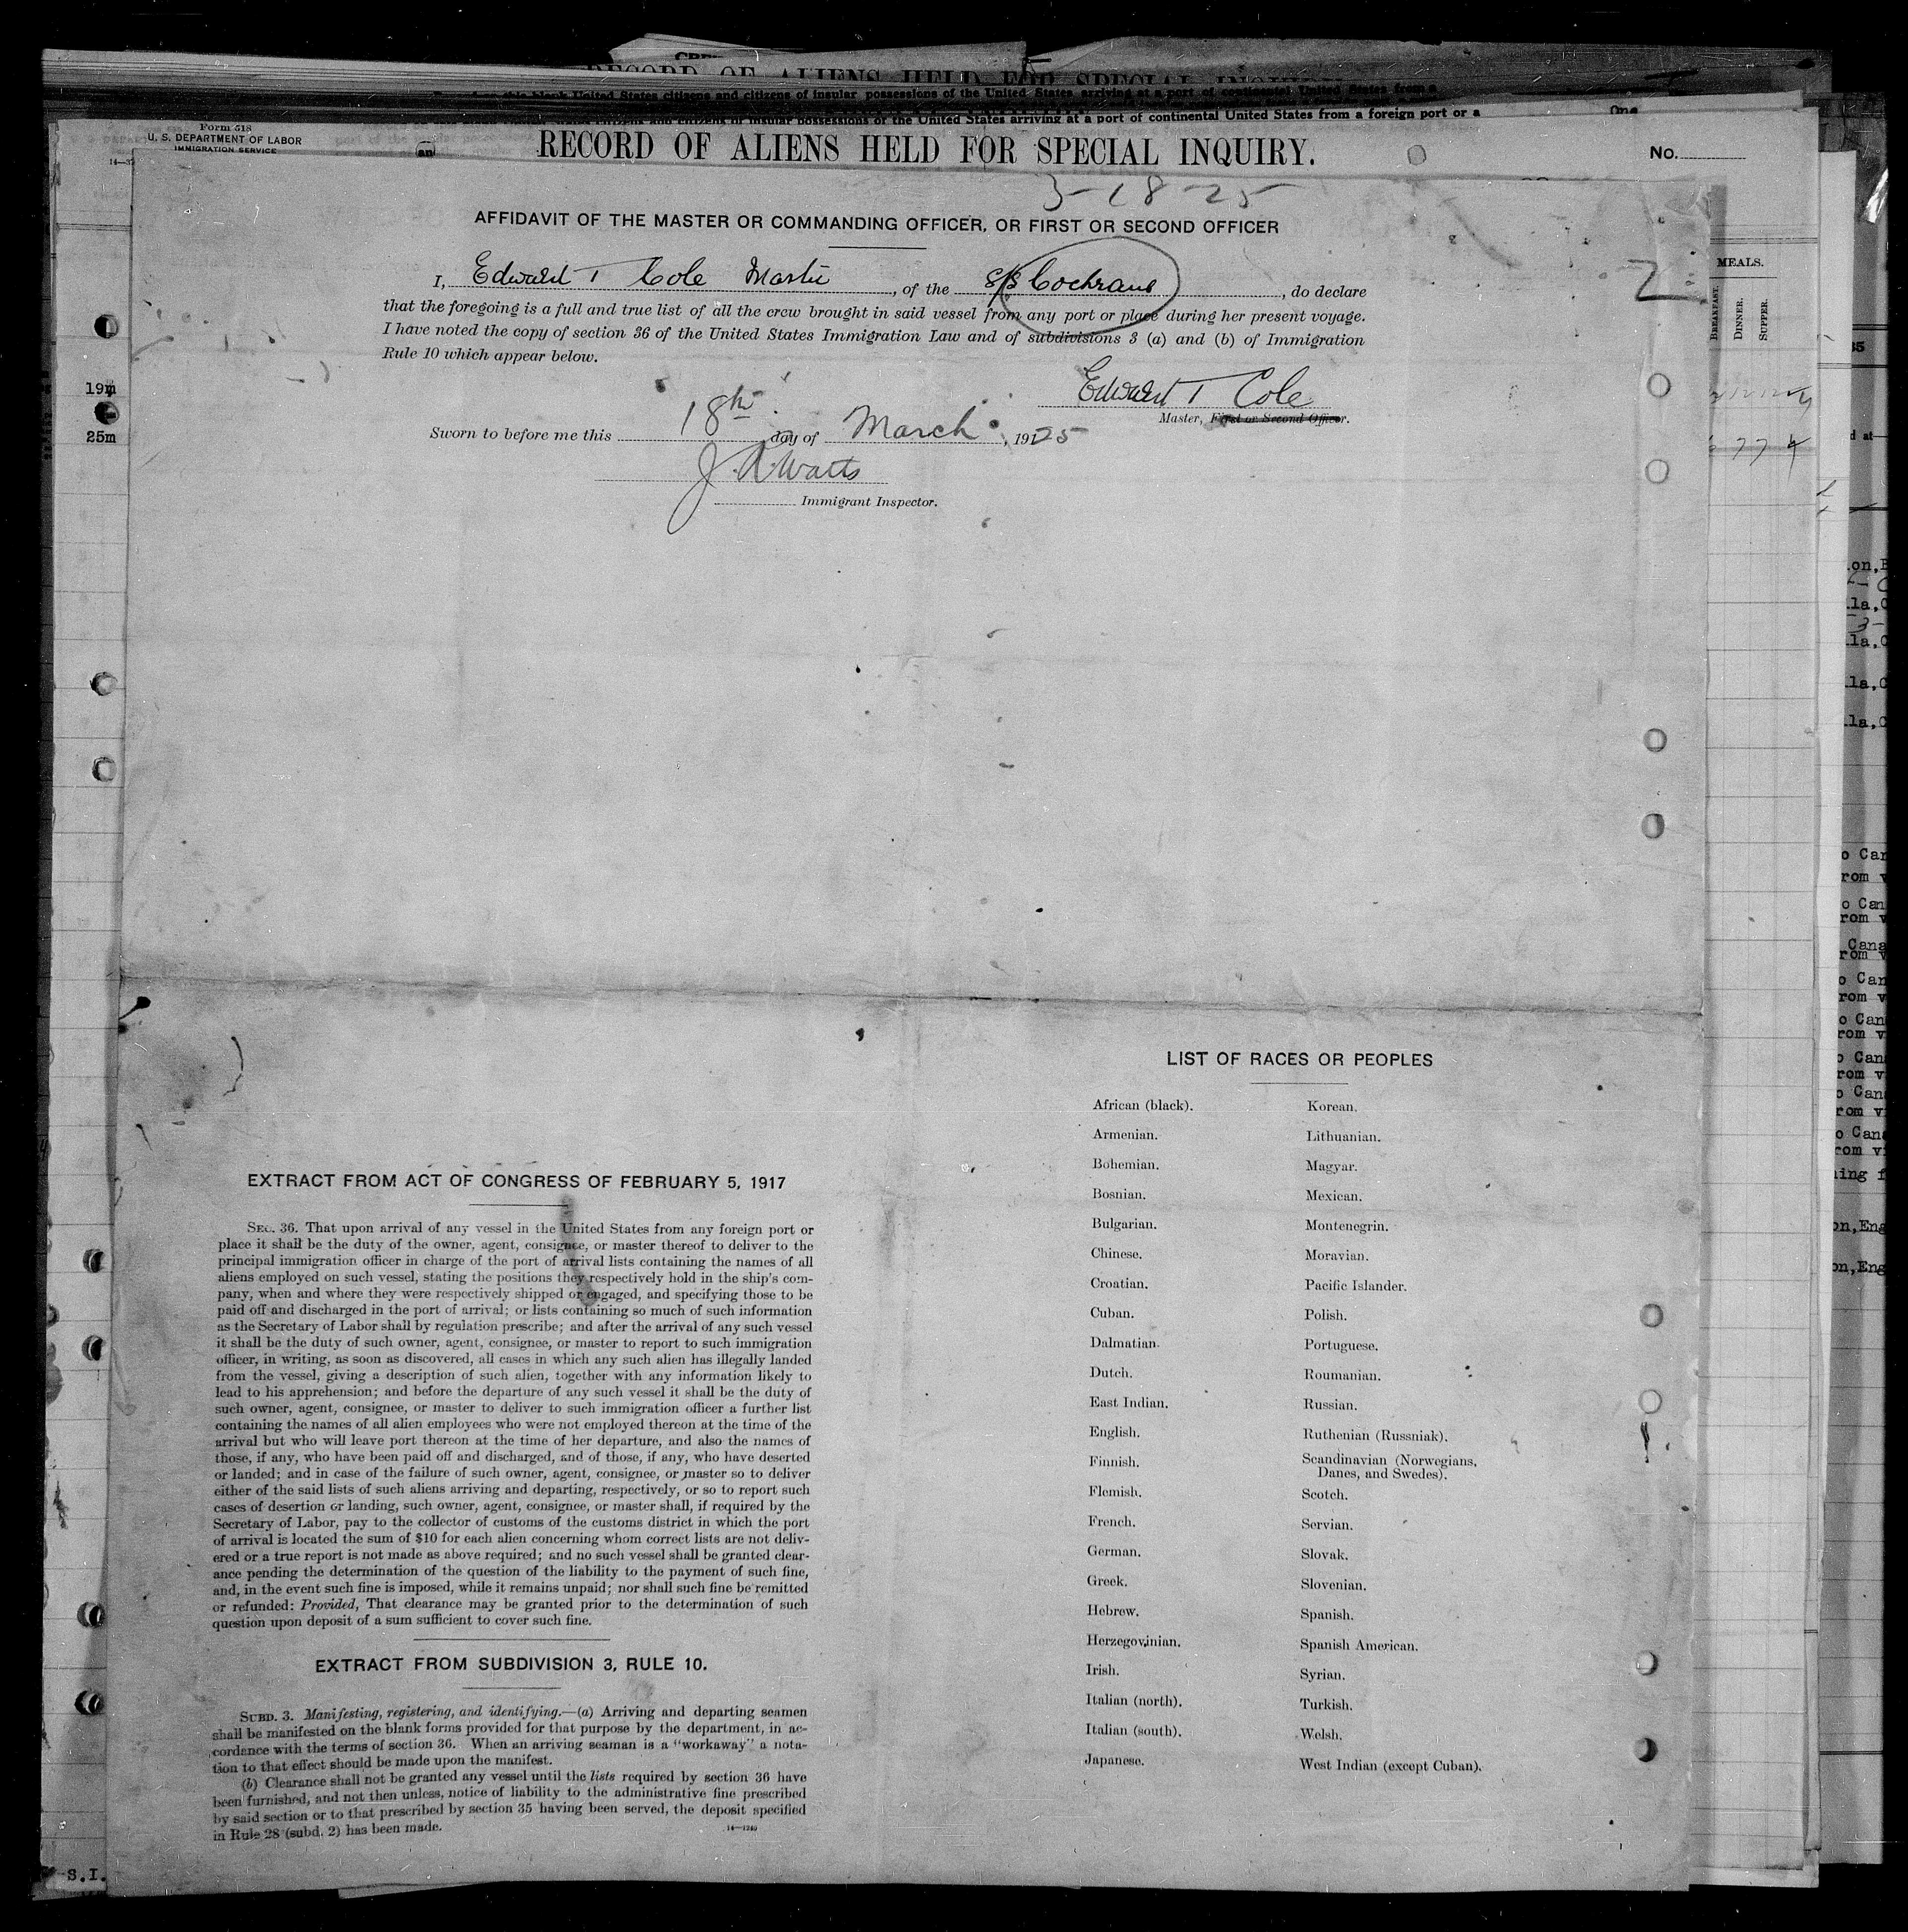 RECORD OF ALIENS HELD FOR SPECIAL INQUIRY
United States citizens and citizens of insular possessions of the United States arriving at a port of continental United States from a
of insular possessions of the United States arriving at a port of continental United States from a foreign port or a
One
Form 518
U. S. DEPARTMENT OF LABOR
IMMIGRATION SERVICE
RECORD OF ALIENS HELD FOR SPECIAL INQUIRY.
No.
3-18-25
AFFIDAVIT OF THE MASTER OR COMMANDING OFFICER, OR FIRST OR SECOND OFFICER
I, Edward T Cole Master, of the S/S Cochrane, do declare
that the foregoing is a full and true list of all the crew brought in said vessel from any port or place during her present voyage.
I have noted the copy of section 36 of the United States Immigration Law and of subdivisions 3 (a) and (b) of Immigration
Rule 10 which appear below.
Edward T Cole
Master, First or Second Officer.
Sworn to before me this 18th day of March, 1925
J. A. Watts
Immigrant Inspector.
MEALS.
BREAKFAST.
DINNER.
SUPPER.
19m
25m
LIST OF RACES OR PEOPLES
African (black).
Armenian.
Bohemian.
Bosnian.
Bulgarian.
Chinese.
Croatian.
Cuban.
Dalmatian.
Dutch.
East Indian.
English.
Finnish.
Flemish.
French.
German.
Greek.
Hebrew.
Herzegovinian.
Irish.
Italian (north).
Italian (south).
Japanese.
Korean.
Lithuanian.
Magyar.
Mexican.
Montenegrin.
Moravian.
Pacific Islander.
Polish.
Portuguese.
Roumanian.
Russian.
Ruthenian (Russniak).
Scandinavian (Norwegians,
Danes, and Swedes).
Scotch.
Servian.
Slovak.
Slovenian.
Spanish.
Spanish American.
Syrian.
Turkish.
Welsh.
West Indian (except Cuban).
EXTRACT FROM ACT OF CONGRESS OF FEBRUARY 5, 1917
SEC. 36. That upon arrival of any vessel in the United States from any foreign port or
place it shall be the duty of the owner, agent, consignee, or master thereof to deliver to the
principal immigration officer in charge of the port of arrival lists containing the names of all
aliens employed on such vessel, stating the positions they respectively hold in the ship's com-
pany, when and where they were respectively shipped or engaged, and specifying those to be
paid off and discharged in the port of arrival; or lists containing so much of such information
as the Secretary of Labor shall by regulation prescribe; and after the arrival of any such vessel
it shall be the duty of such owner, agent, consignee, or master to report to such immigration
officer, in writing, as soon as discovered, all cases in which any such alien has illegally landed
from the vessel, giving a description of such alien, together with any information likely to
lead to his apprehension; and before the departure of any such vessel it shall be the duty of
such owner, agent, consignee, or master to deliver to such immigration officer a further list
containing the names of all alien employees who were not employed thereon at the time of the
arrival but who will leave port thereon at the time of her departure, and also the names of
those, if any, who have been paid off and discharged, and of those, if any, who have deserted
or landed; and in case of the failure of such owner, agent, consignee, or master so to deliver
either of the said lists of such aliens arriving and departing, respectively, or so to report such
cases of desertion or landing, such owner, agent, consignee, or master shall, if required by the
Secretary of Labor, pay to the collector of customs of the customs district in which the port
of arrival is located the sum of $10 for each alien concerning whom correct lists are not deliv-
ered or a true report is not made as above required; and no such vessel shall be granted clear-
ance pending the determination of the question of the liability to the payment of such fine,
and, in the event such fine is imposed, while it remains unpaid; nor shall such fine be remitted
or refunded: Provided, That clearance may be granted prior to the determination of such
question upon deposit of a sum sufficient to cover such fine.
EXTRACT FROM SUBDIVISION 3, RULE 10.
SUBD. 3. Manifesting, registering, and identifying.—(a) Arriving and departing seamen
shall be manifested on the blank forms provided for that purpose by the department, in ac-
cordance with the terms of section 36. When an arriving seaman is a "workaway" a nota-
tion to that effect should be made upon the manifest.
(b) Clearance shall not be granted any vessel until the lists required by section 36 have
been furnished, and not then unless, notice of liability to the administrative fine prescribed
by said section or to that prescribed by section 35 having been served, the deposit specified
in Rule 28 (subd. 2) has been made.
14—1240
S.I.